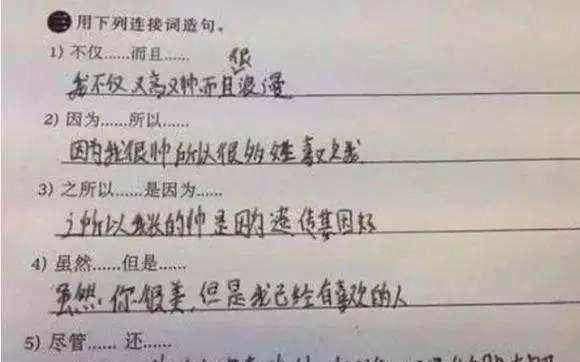 三 用下列连接词造句。
1) 不仅……而且……
很
我不仅又高又帅而且浪漫
2) 因为……所以……
因为我很帅所以很多姓喜又欠我
3) 之所以……是因为……
之所以我长的帅是因为遗传基因好
4) 虽然……但是……
虽然你很美,但是我已经有喜欢的人
5) 尽管…… 还……